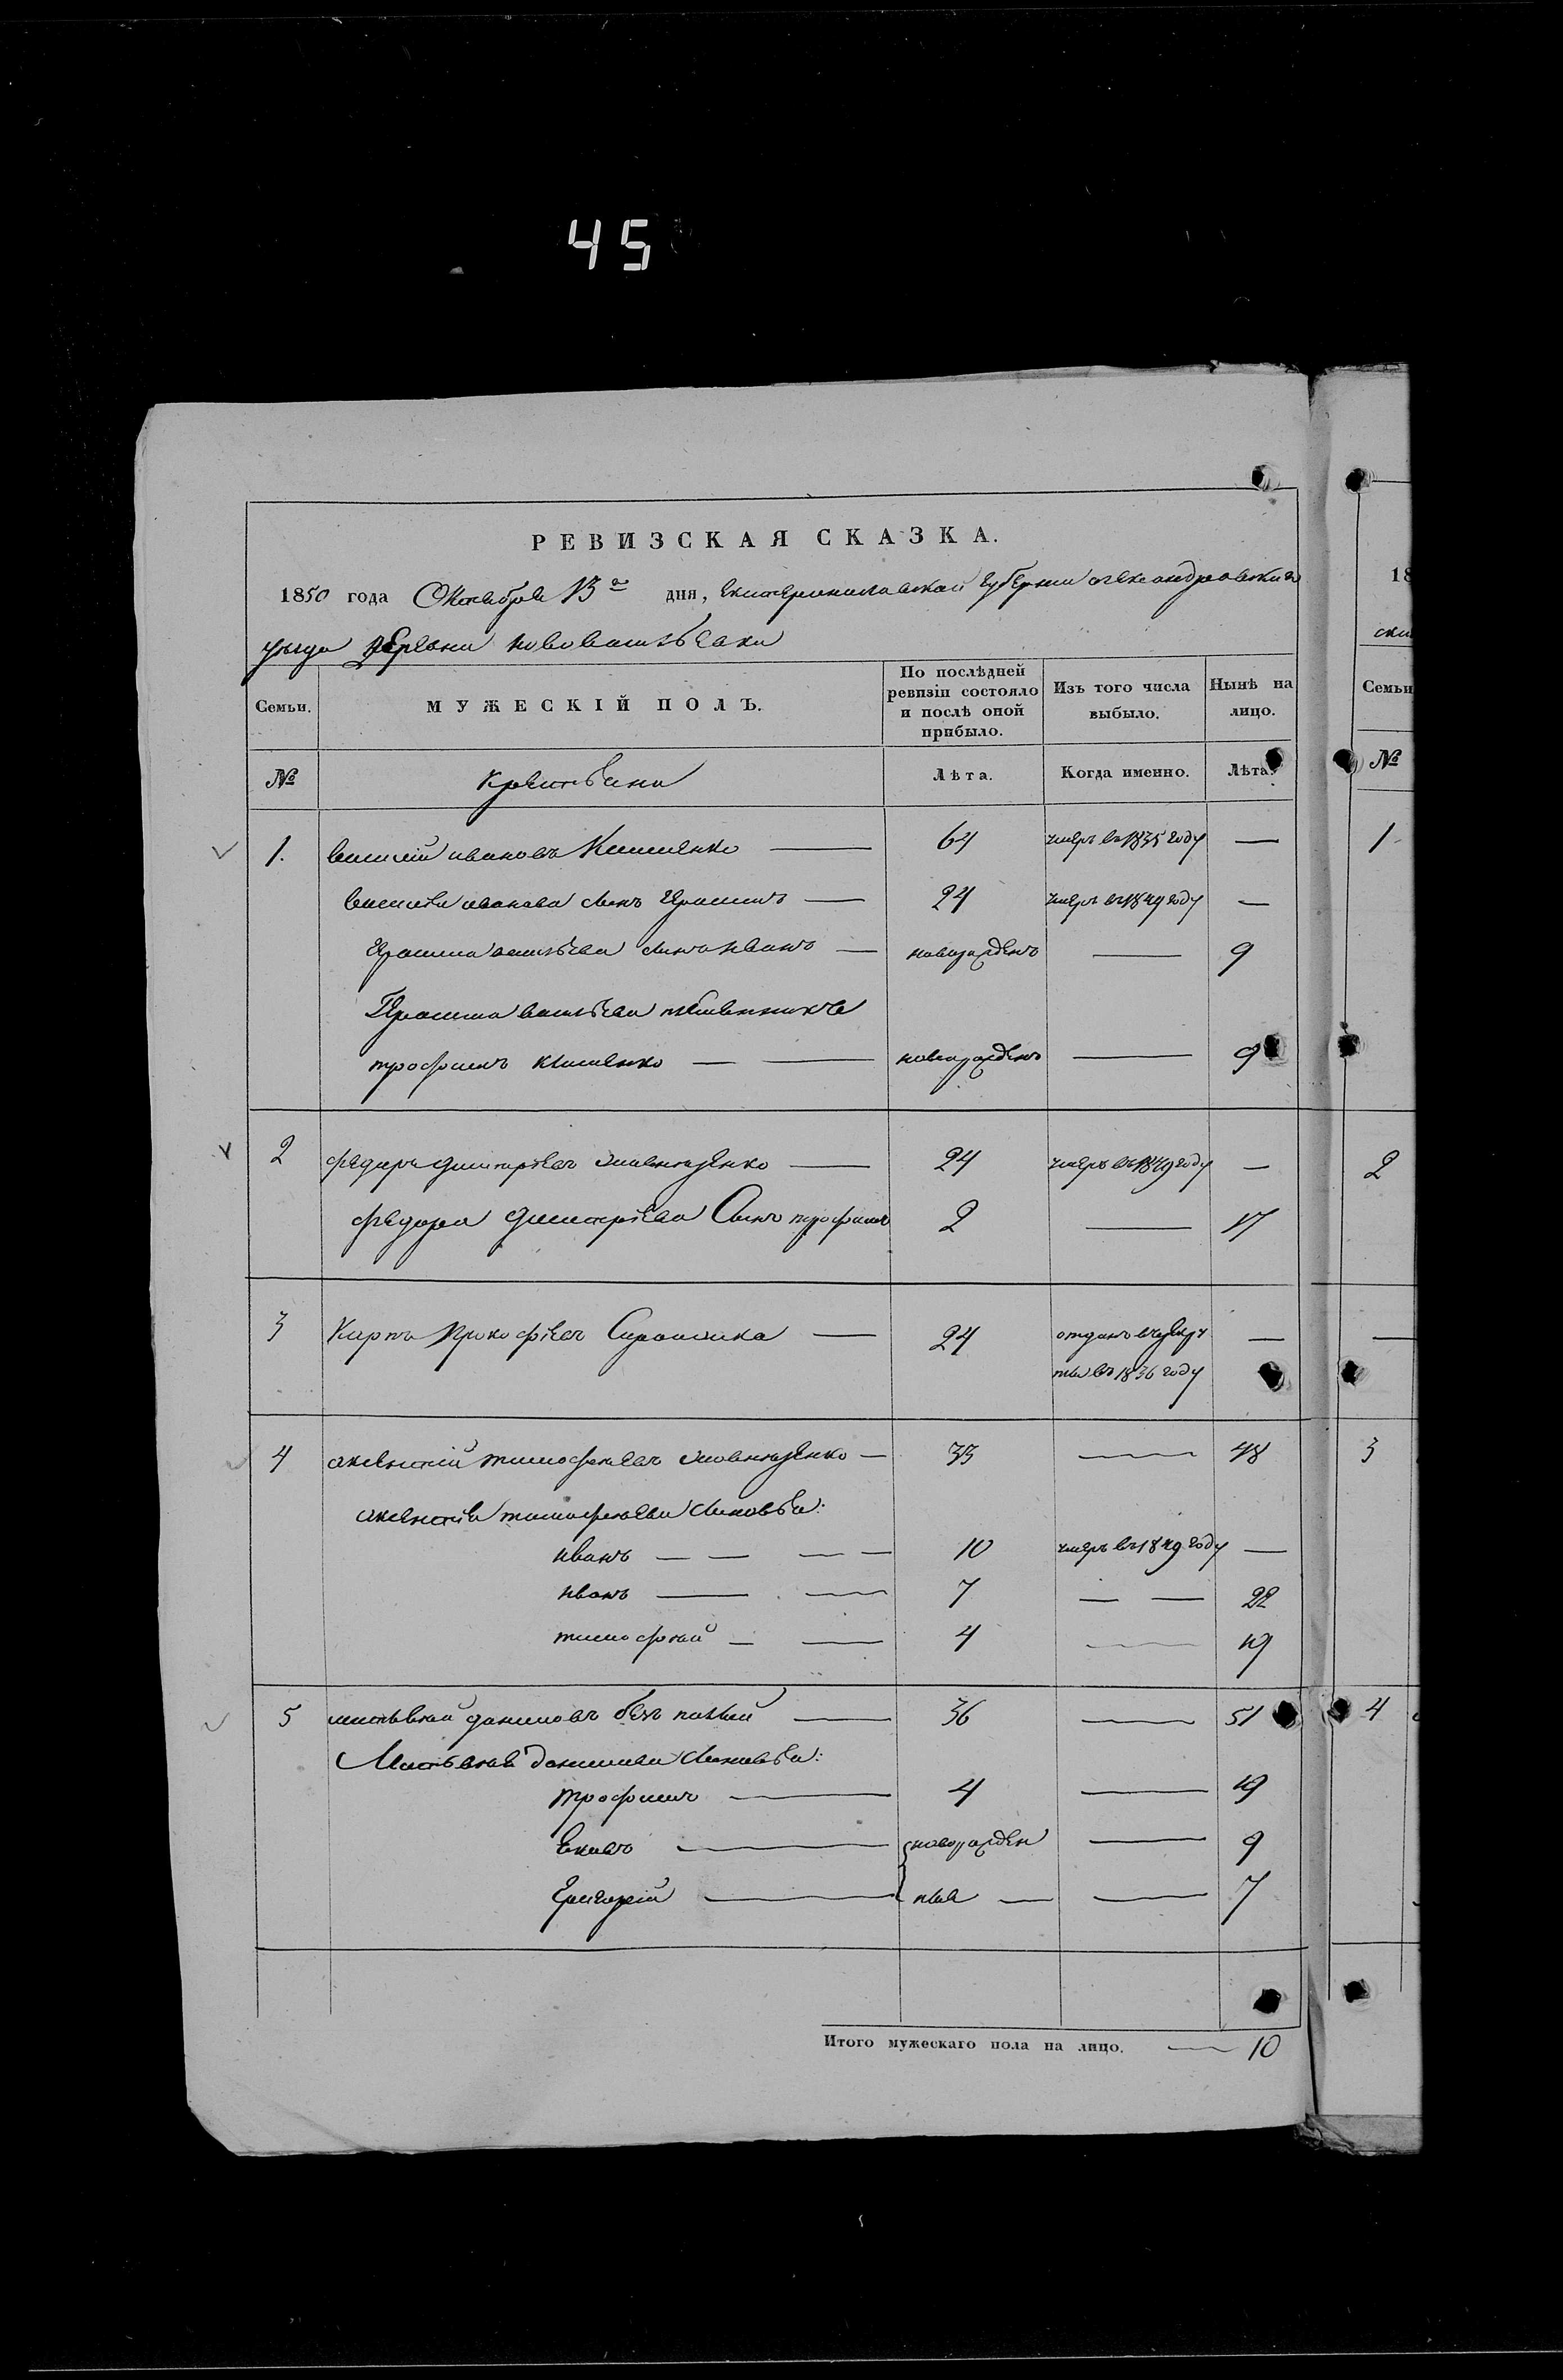 45
РЕВИЗСКАЯ СКАЗКА.
1850 года Октября 13го дня, Екатеринославской губернии александровскаго
уезда деревни нововасильевки
Семьи. МУЖЕСКІЙ ПОЛЪ. По послѣдней ревизіи состояло и послѣ оной прибыло. Изъ того числа выбыло. Нынѣ на лицо.
№ крестьяни Лѣта. Когда именно. Лѣта.
1. василий ивановъ Кишенко 64 умеръ въ 1835 году —
василия иванова сынъ 24 умеръ въ 1849 году —
васильева сынъ иванъ новорожденъ — 9
васильева племянникъ
трофимъ кишенко новорожденъ — 9
2 федоръ дмитріевъ 24 умеръ въ 1849 году —
федора дмитріева Сынъ трофимъ 2 — 17
3 Карпъ Прокофіевъ 24 отданъ врекру
ты въ 1836 году —
4 аксентий тимофеевъ 33 — 48
аксентия тимофеева сыновья:
иванъ 10 умеръ въ 1849 году —
иванъ 7 — 22
тимофей 4 — 19
5 матьвей даниловъ 36 — 51
Матьвея данилова сыновья:
трофимъ 4 — 19
новорожден — 9
Григорий ные — 7
Итого мужескаго пола на лицо. — 10
18
Семьи
№
1
2
—
3
4